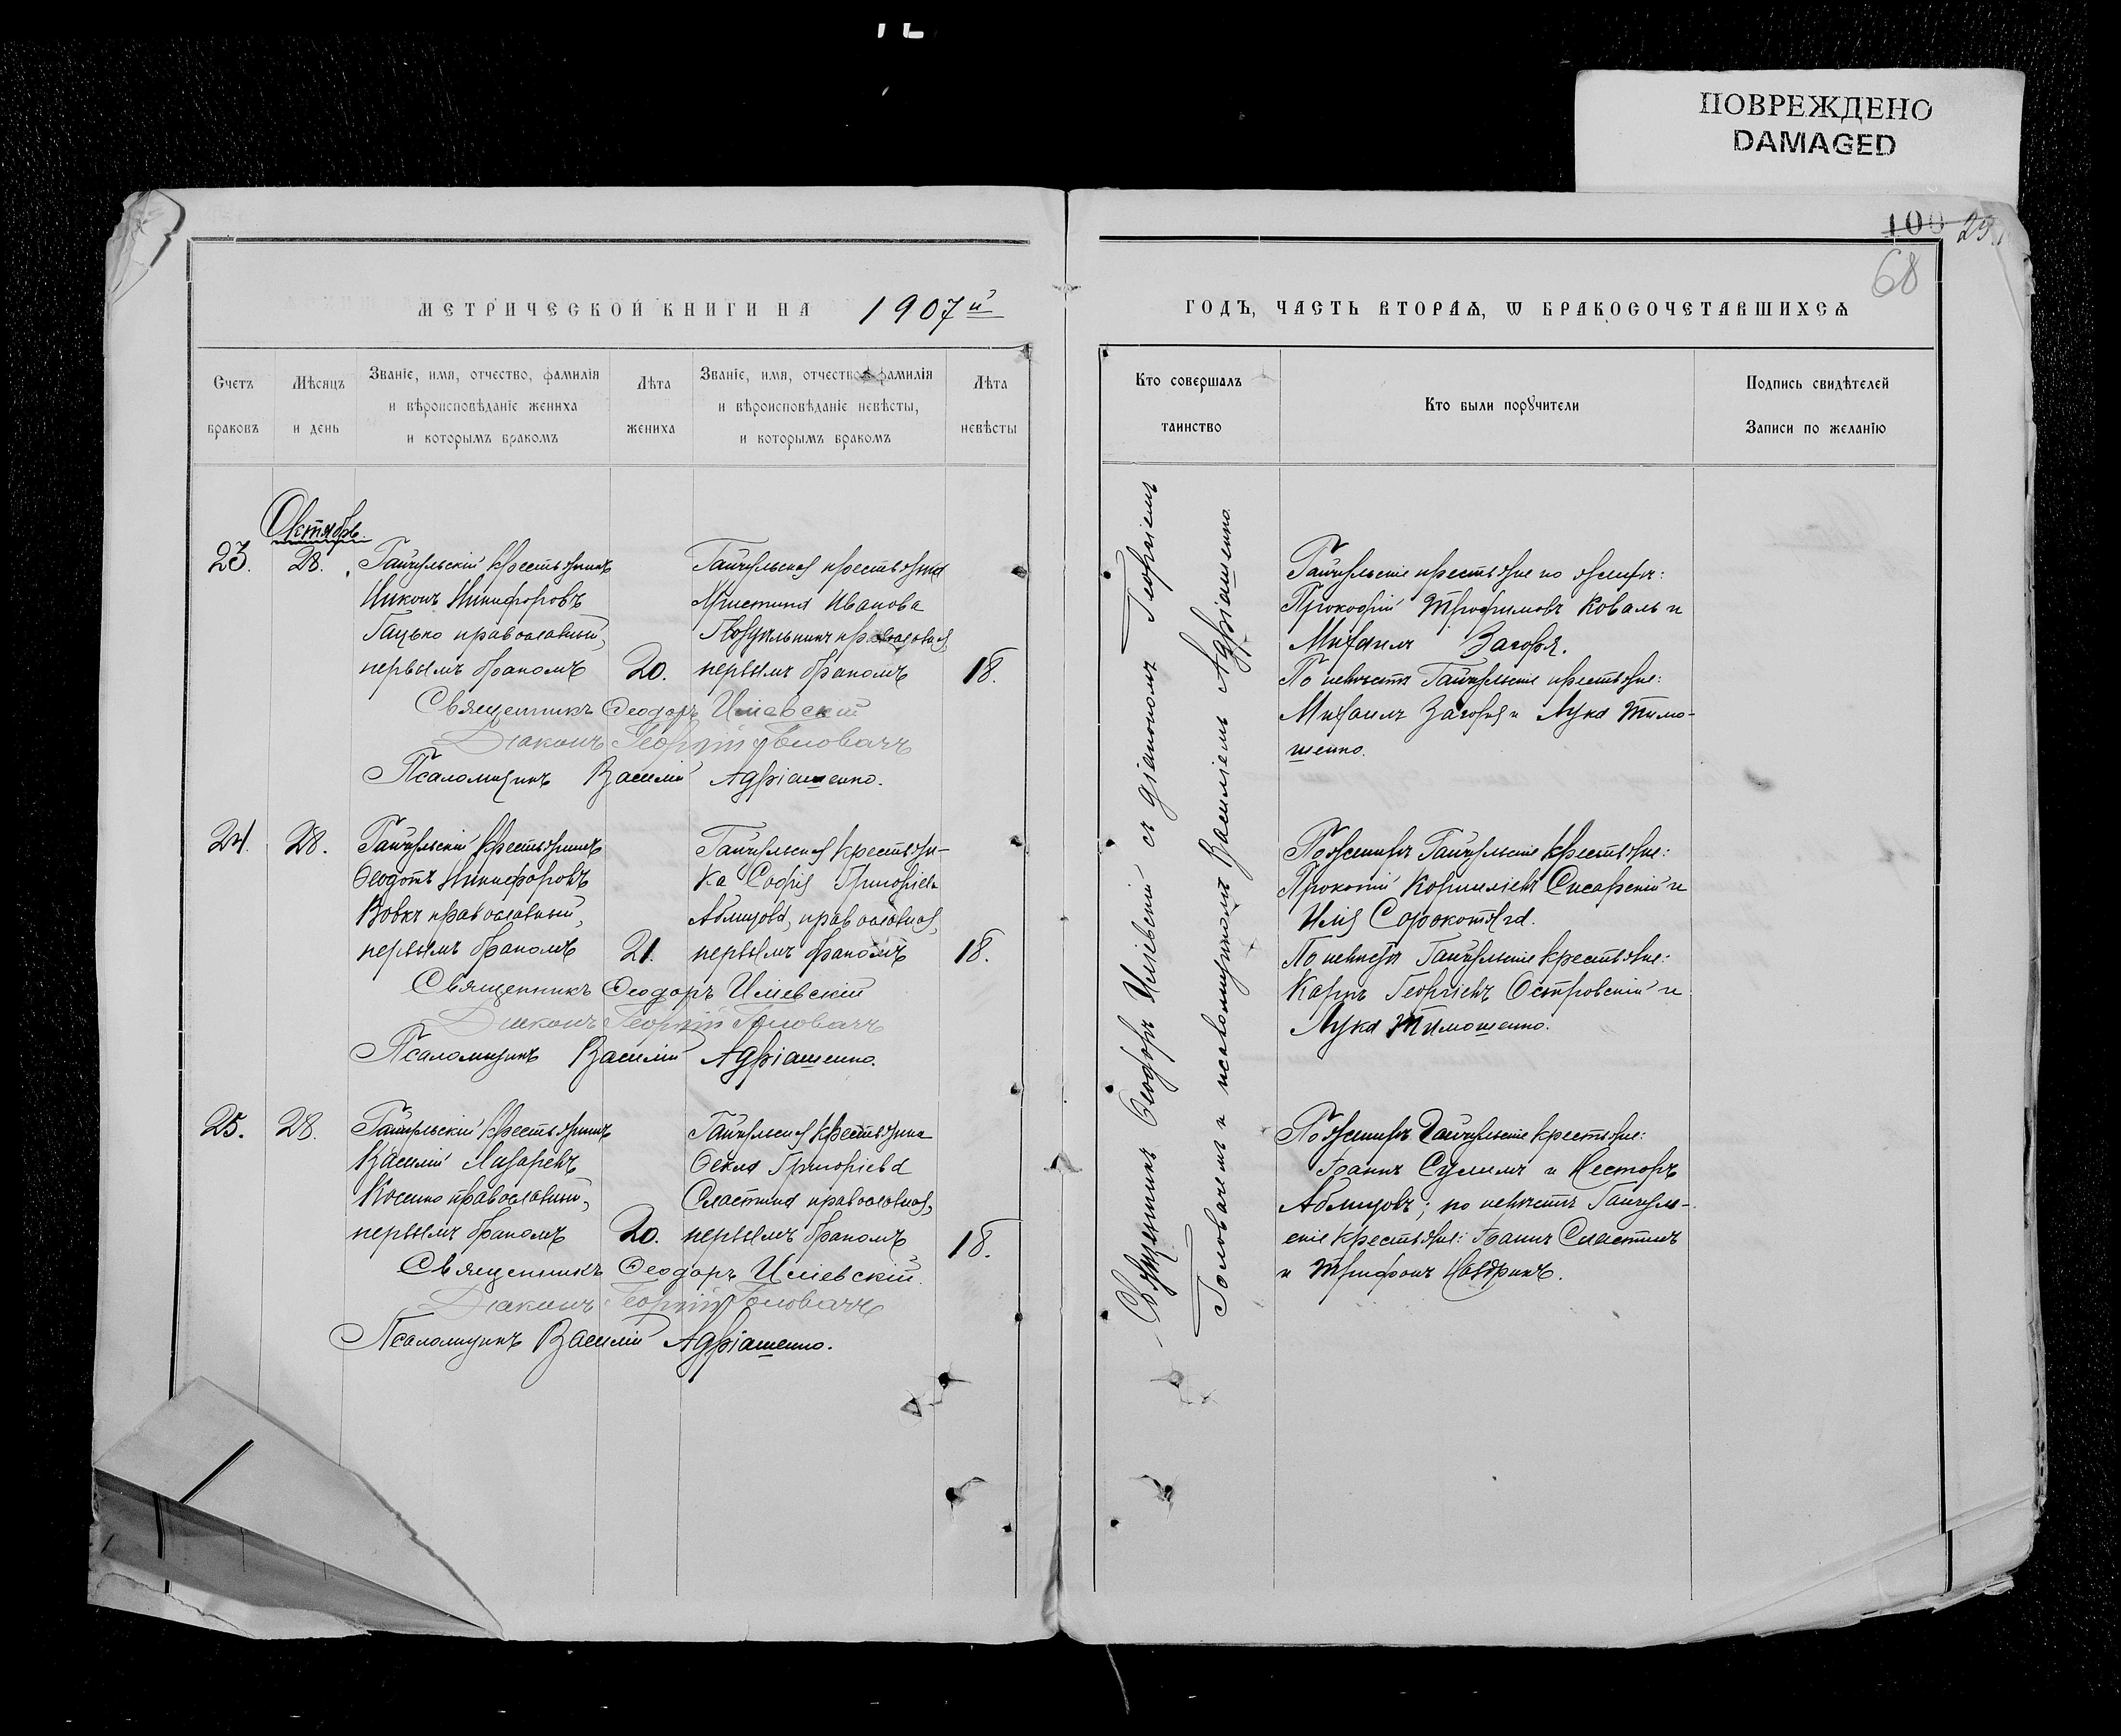 ПОВРЕЖДЕНО
DAMAGED
100
29
68
МЕТРИЧЕСКОЙ КНИГИ НА 1907й
ГОДЪ, ЧАСТЬ ВТОРАѦ, Ѡ БРАКОСОЧЕТАВШИХСѦ
Счетъ
браковъ
Мѣсяцъ
и день
Званіе, имя, отчество, фамилія
и вѣроисповѣданіе жениха
и которымъ бракомъ
Лѣта
жениха
Званіе, имя, отчество, фамилія
и вѣроисповѣданіе невѣсты,
и которымъ бракомъ
Лѣта
невѣсты
Кто совершалъ
таинство
Кто были порꙋчители
Подпись свидѣтелей
Записи по желанію
Октябрь.
23.
28.
Гайчульскій крестьянинъ
Никонъ Никифоровъ
Гацько православный,
первымъ бракомъ
20.
Гайчульская крестьянка
Христина Иванова
православная,
первымъ бракомъ
18.
Священникъ Ѳеодоръ Иліевскій
Діаконъ Георгій Головачъ
Псаломщикъ Василій Адріашенко.
24.
28.
Гайчульскій крестьянинъ
Ѳеодотъ Никифоровъ
Вовкъ православный,
первымъ бракомъ
21.
Гайчульская крестьян-
ка Софія Григоріева
Аблицова, православная,
первымъ бракомъ
18.
Священникъ Ѳеодоръ Иліевскій
Діаконъ Георгій Головачъ
Псаломщикъ Василій Адріашенко.
25.
28.
Гайчульскій крестьянинъ
Василій Лазаревъ
Косенко православный,
первымъ бракомъ
20.
Гайчульская крестьянка
Ѳекла Григоріева
Сластина православная,
первымъ бракомъ
18.
Священникъ Ѳеодоръ Иліевскій.
Діаконъ Георгій Головачъ
Псаломщикъ Василій Адріашенко.
Священникъ Ѳеодоръ Иліевскій съ діакономъ Георгіемъ
Головачемъ и псаломщикомъ Василіемъ Адріашенко.
Гайчульскіе крестьяне по женихѣ:
Прокофій Трофимовъ Коваль и
Михаилъ Загоря.
По невѣстѣ Гайчульскіе крестьяне:
Михаилъ Загоря и Лука Тимо-
шенко.
По женихѣ Гайчульскіе крестьяне:
Прокопій Корниліевъ Сисарскій и
Илія Сорокотяга.
По невѣстѣ Гайчульскіе крестьяне:
Карпъ Георгіевъ Островскій и
Лука Тимошенко.
По женихѣ Гайчульскіе крестьяне:
Іоаннъ Сулимъ и Несторъ
Аблицовъ; по невѣстѣ Гайчуль-
скіе крестьяне: Іоаннъ Сластинъ
и Трифонъ